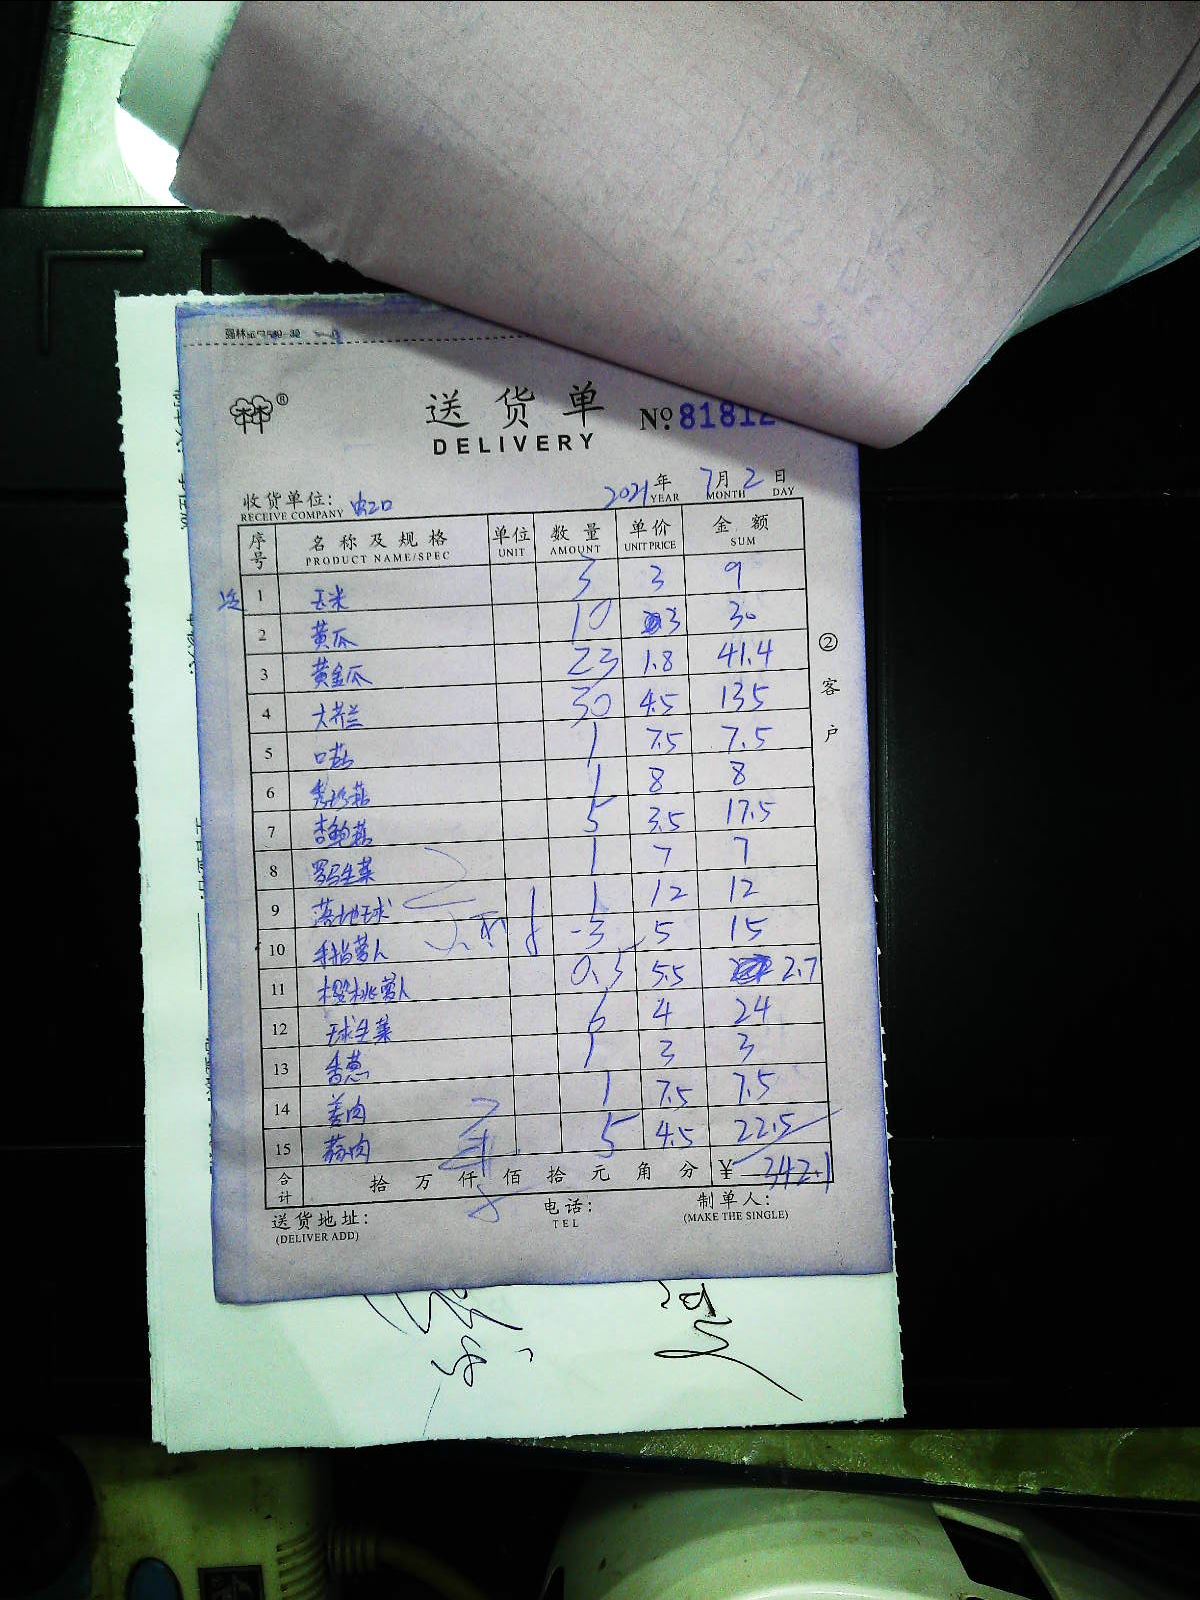 送货单 Nº 81812
DELIVERY
收货单位: 虹口 2021年 7月2日
RECEIVE COMPANY YEAR MONTH DAY
序号 名称及规格 单位 数量 单价 金额
PRODUCT NAME/SPEC UNIT AMOUNT UNIT PRICE SUM
1 玉米 3 3 9
2 黄瓜 10 3 30
3 黄金瓜 23 1.8 41.4
4 大芥兰 30 4.5 135
5 口菇 1 7.5 7.5
6 秀珍菇 1 8 8
7 杏鲍菇 5 3.5 17.5
8 罗马生菜 1 7 7
9 落地球 1 12 12
10 手指萝卜 3 5 15
11 樱桃萝卜 0.5 5.5 2.7
12 球生菜 6 4 24
13 香葱 1 3 3
14 姜肉 1 7.5 7.5
15 蒜肉 5 4.5 22.5
合计 拾万仟佰拾元角分 ¥ 342.1
送货地址: 电话: 制单人:
(DELIVER ADD) TEL (MAKE THE SINGLE)
② 客户